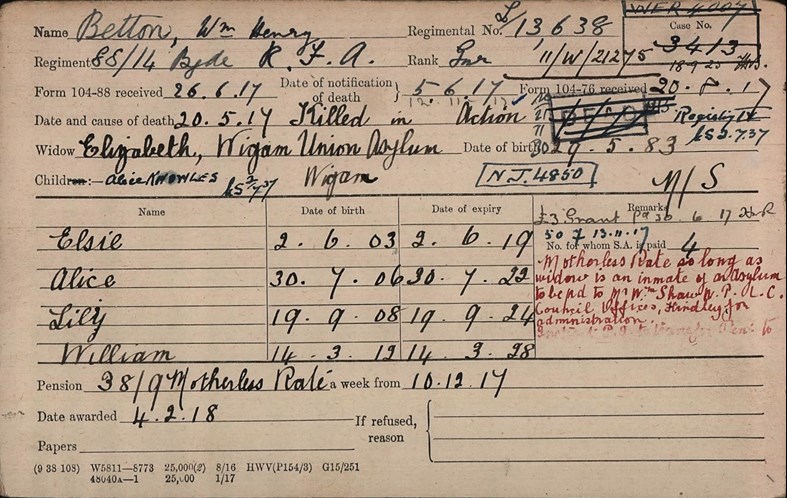 Name Betton, Wm Henry Regimental No. L/13638
Case No.
3413
Regiment 88/14 Bgde R. F. A. Rank Gnr 11/W/21275
18.9.25
Form 104-88 received 26.6.17 Date of notification of death } 5.6.17 Form 104-76 received 20.8.17
12.11.17
Date and cause of death 20.5.17 Killed in Action
DEAD
Registry
LS 2.7.37
Widow Elizabeth, Wigam Union Asylum Date of birth 29.5.83
Children:— Alice KNOWLES Wigam N.J. 4850 M/S
Name Date of birth Date of expiry Remarks
£3 Grant Pd 30.6.17
50 13.11.17
No. for whom S.A. is paid 4
Elsie 2.6.03 2.6.19
Alice 30.7.06 30.7.22
Lily 19.9.08 19.9.24
William 14.3.12 14.3.28
Motherless Rate so long as
widow is an inmate of an asylum
to be pd to Mr Wm Shaw W.P.L.C.
Council Offices, Hindley for
administration.
Pension 38/9 Motherless Rate a week from 10.12.17
Date awarded 4.2.18 If refused, reason
Papers
(9 38 108) W5811—8773 25,000(2) 8/16 HWV(P154/3) G15/251
48040A—1 25,000 1/17